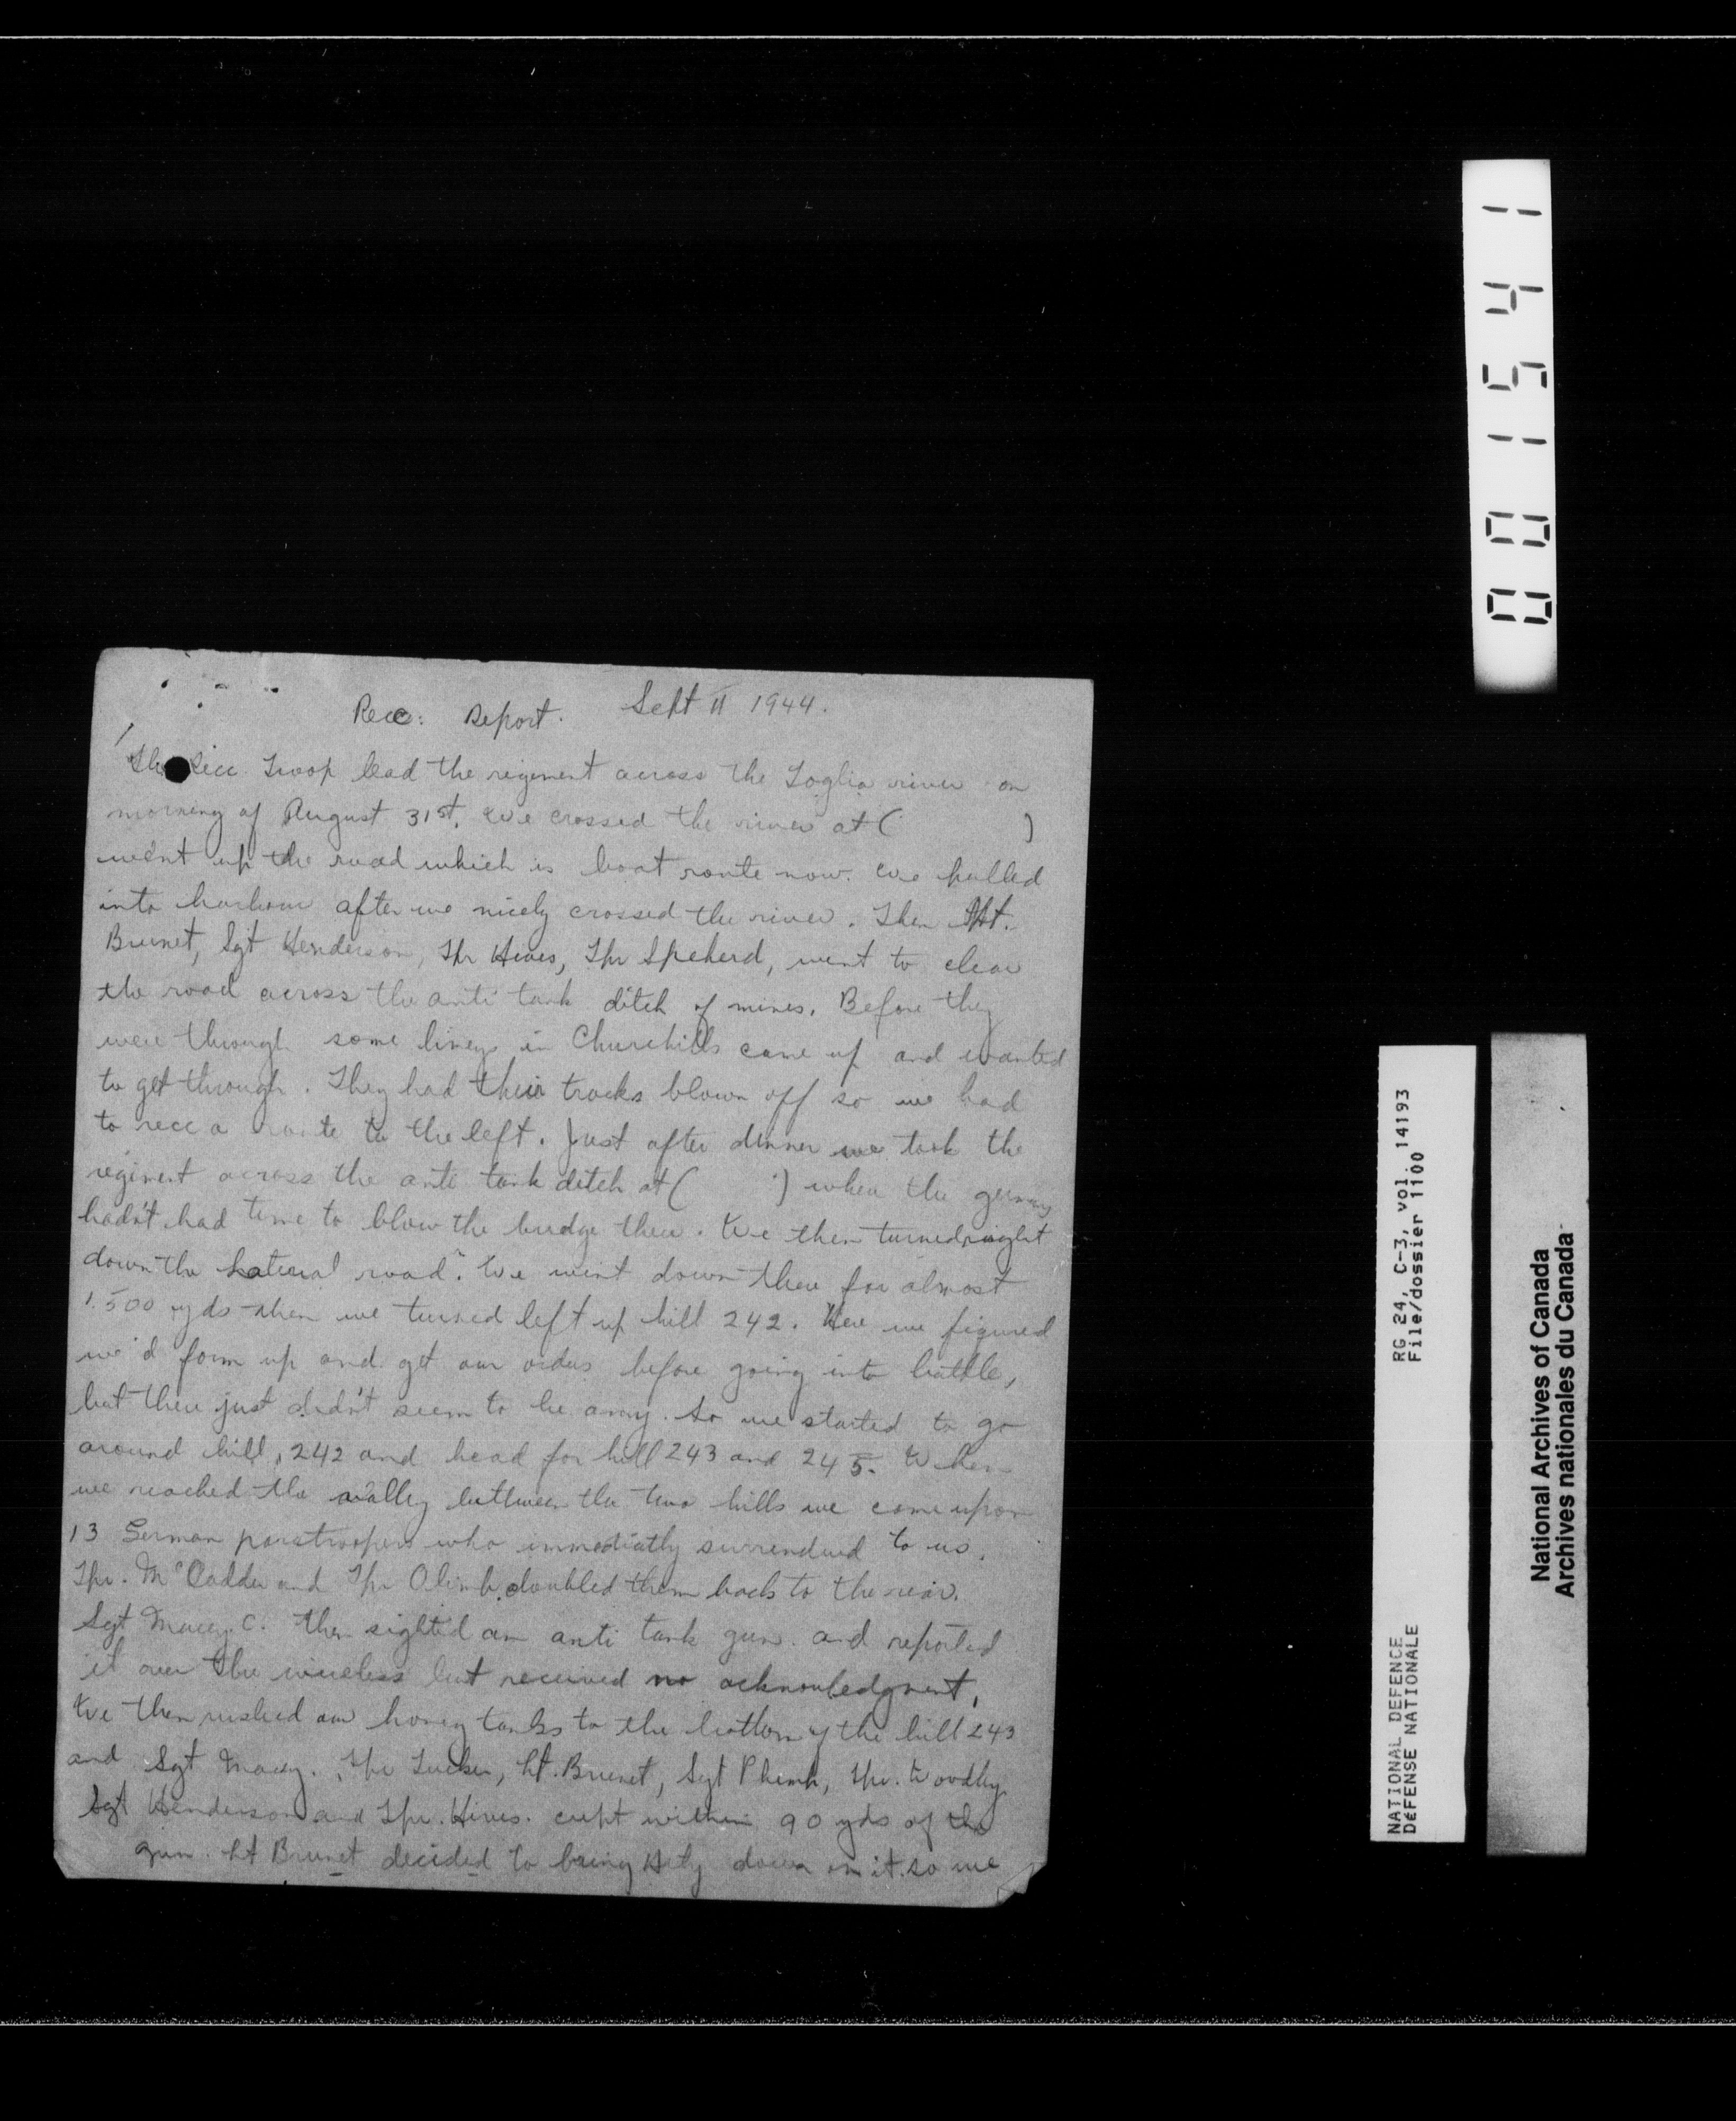 Recce: Report. Sept 11 1944.
1
The Recc Troop lead the regiment across the Foglia river on
morning of August 31st. We crossed the river at (          )
went up the road which is boat route now. We pulled
into harbour after we nicely crossed the river. Then Lt.
Brunet, Sgt Henderson, Tpr Hives, Tpr Speherd, went to clear
the road across the anti tank ditch of mines. Before they
were through some limeys in Churchills came up and wanted
to get through. They had their tracks blown off so we had
to recc a route to the left. Just after dinner we took the
regiment across the anti tank ditch at (        ) when the germans
hadn't had time to blow the bridge there. We then turned right
down the lateral road. We went down there for almost
1.500 yds then we turned left up hill 242. Here we figured
we'd form up and get our orders before going into battle,
but there just didn't seem to be any. So we started to go
around hill, 242 and head for hill 243 and 245. When
we reached the valley buttween the two hills we come upon
13 German paratroopers who immediatly surrendued to us.
Tpr. McCadden and Tpr doubled them back to the rear.
Sgt Macey. C. then sighted an anti tank gun. and reported
it over the wireless but received no acknowledgment,
We then rushed our honey tanks to the bottom of the hill 243
and Sgt Macey. Tpr Tucker, Lt. Brunet, Sgt Phemp, Tpr. Woodley
Sgt Henderson and Tpr. Hives. crept within 90 yds of the
gun. Lt Brunet decided to bring Arty down on it. so we
001541
NATIONAL DEFENCE RG 24, C-3, vol. 14193
DÉFENSE NATIONALE File/dossier 1100
National Archives of Canada
Archives nationales du Canada